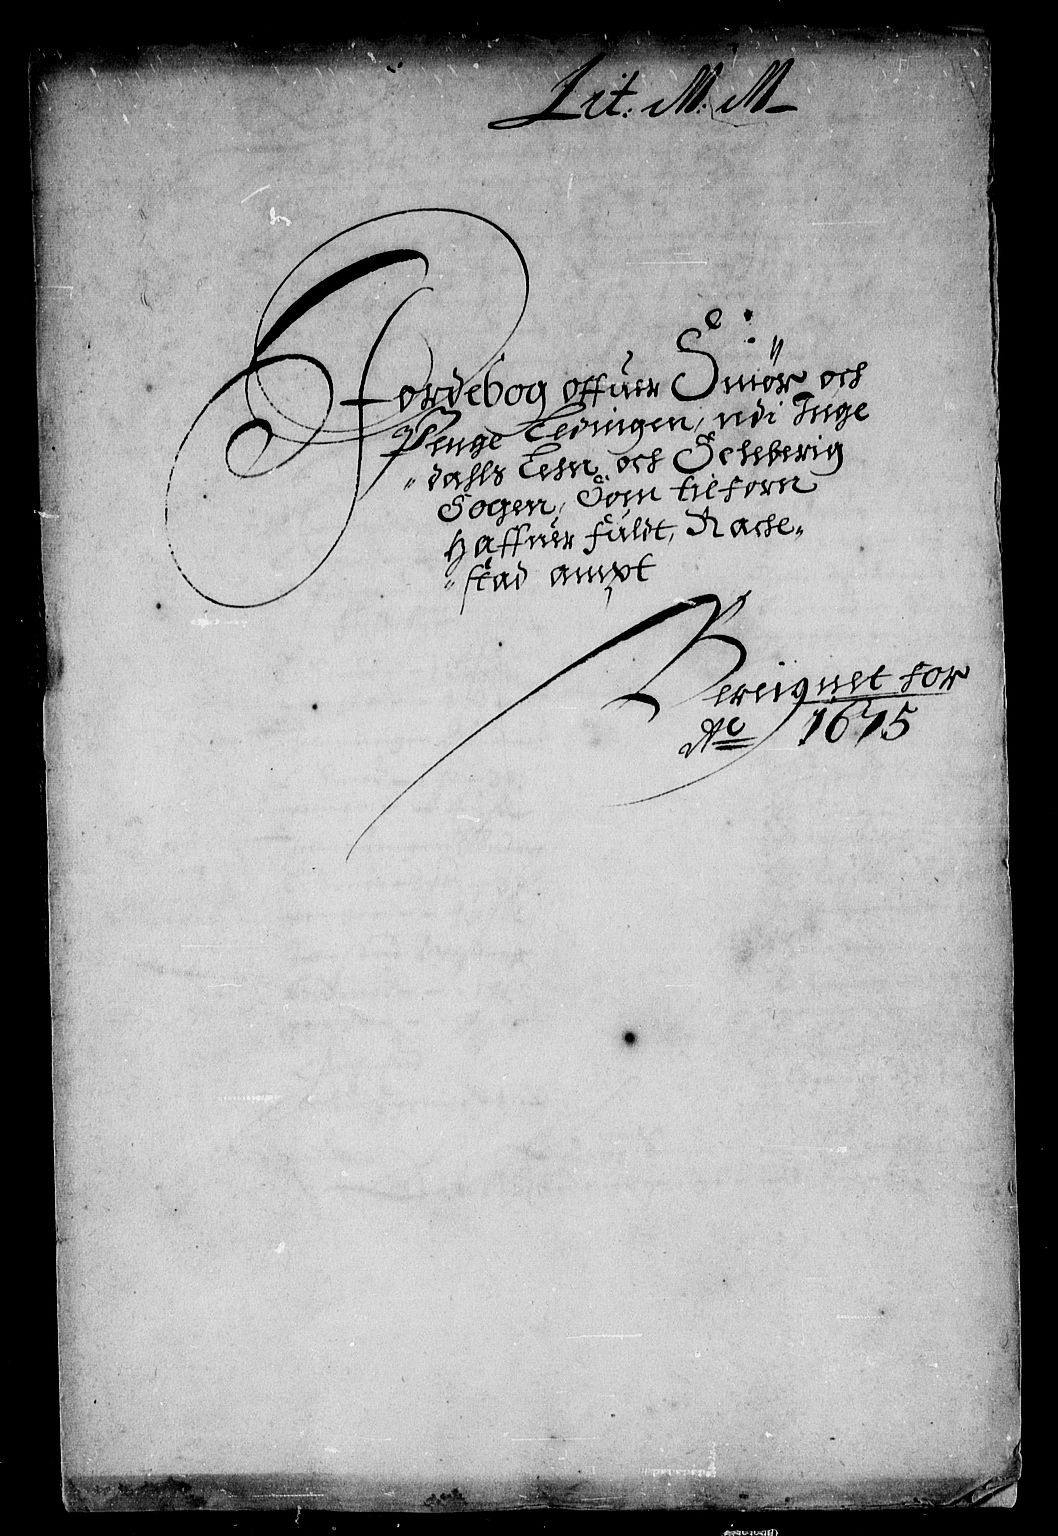 Lit. M. M
Jordebog offuer Smör och
Penge Ledingen, udi Inge
dahls Lehn och Schiberig
Sogen, Som tilforn
Haffuer fuldt, Rache„
„stad ampt
Bereignet for
Ao 1675